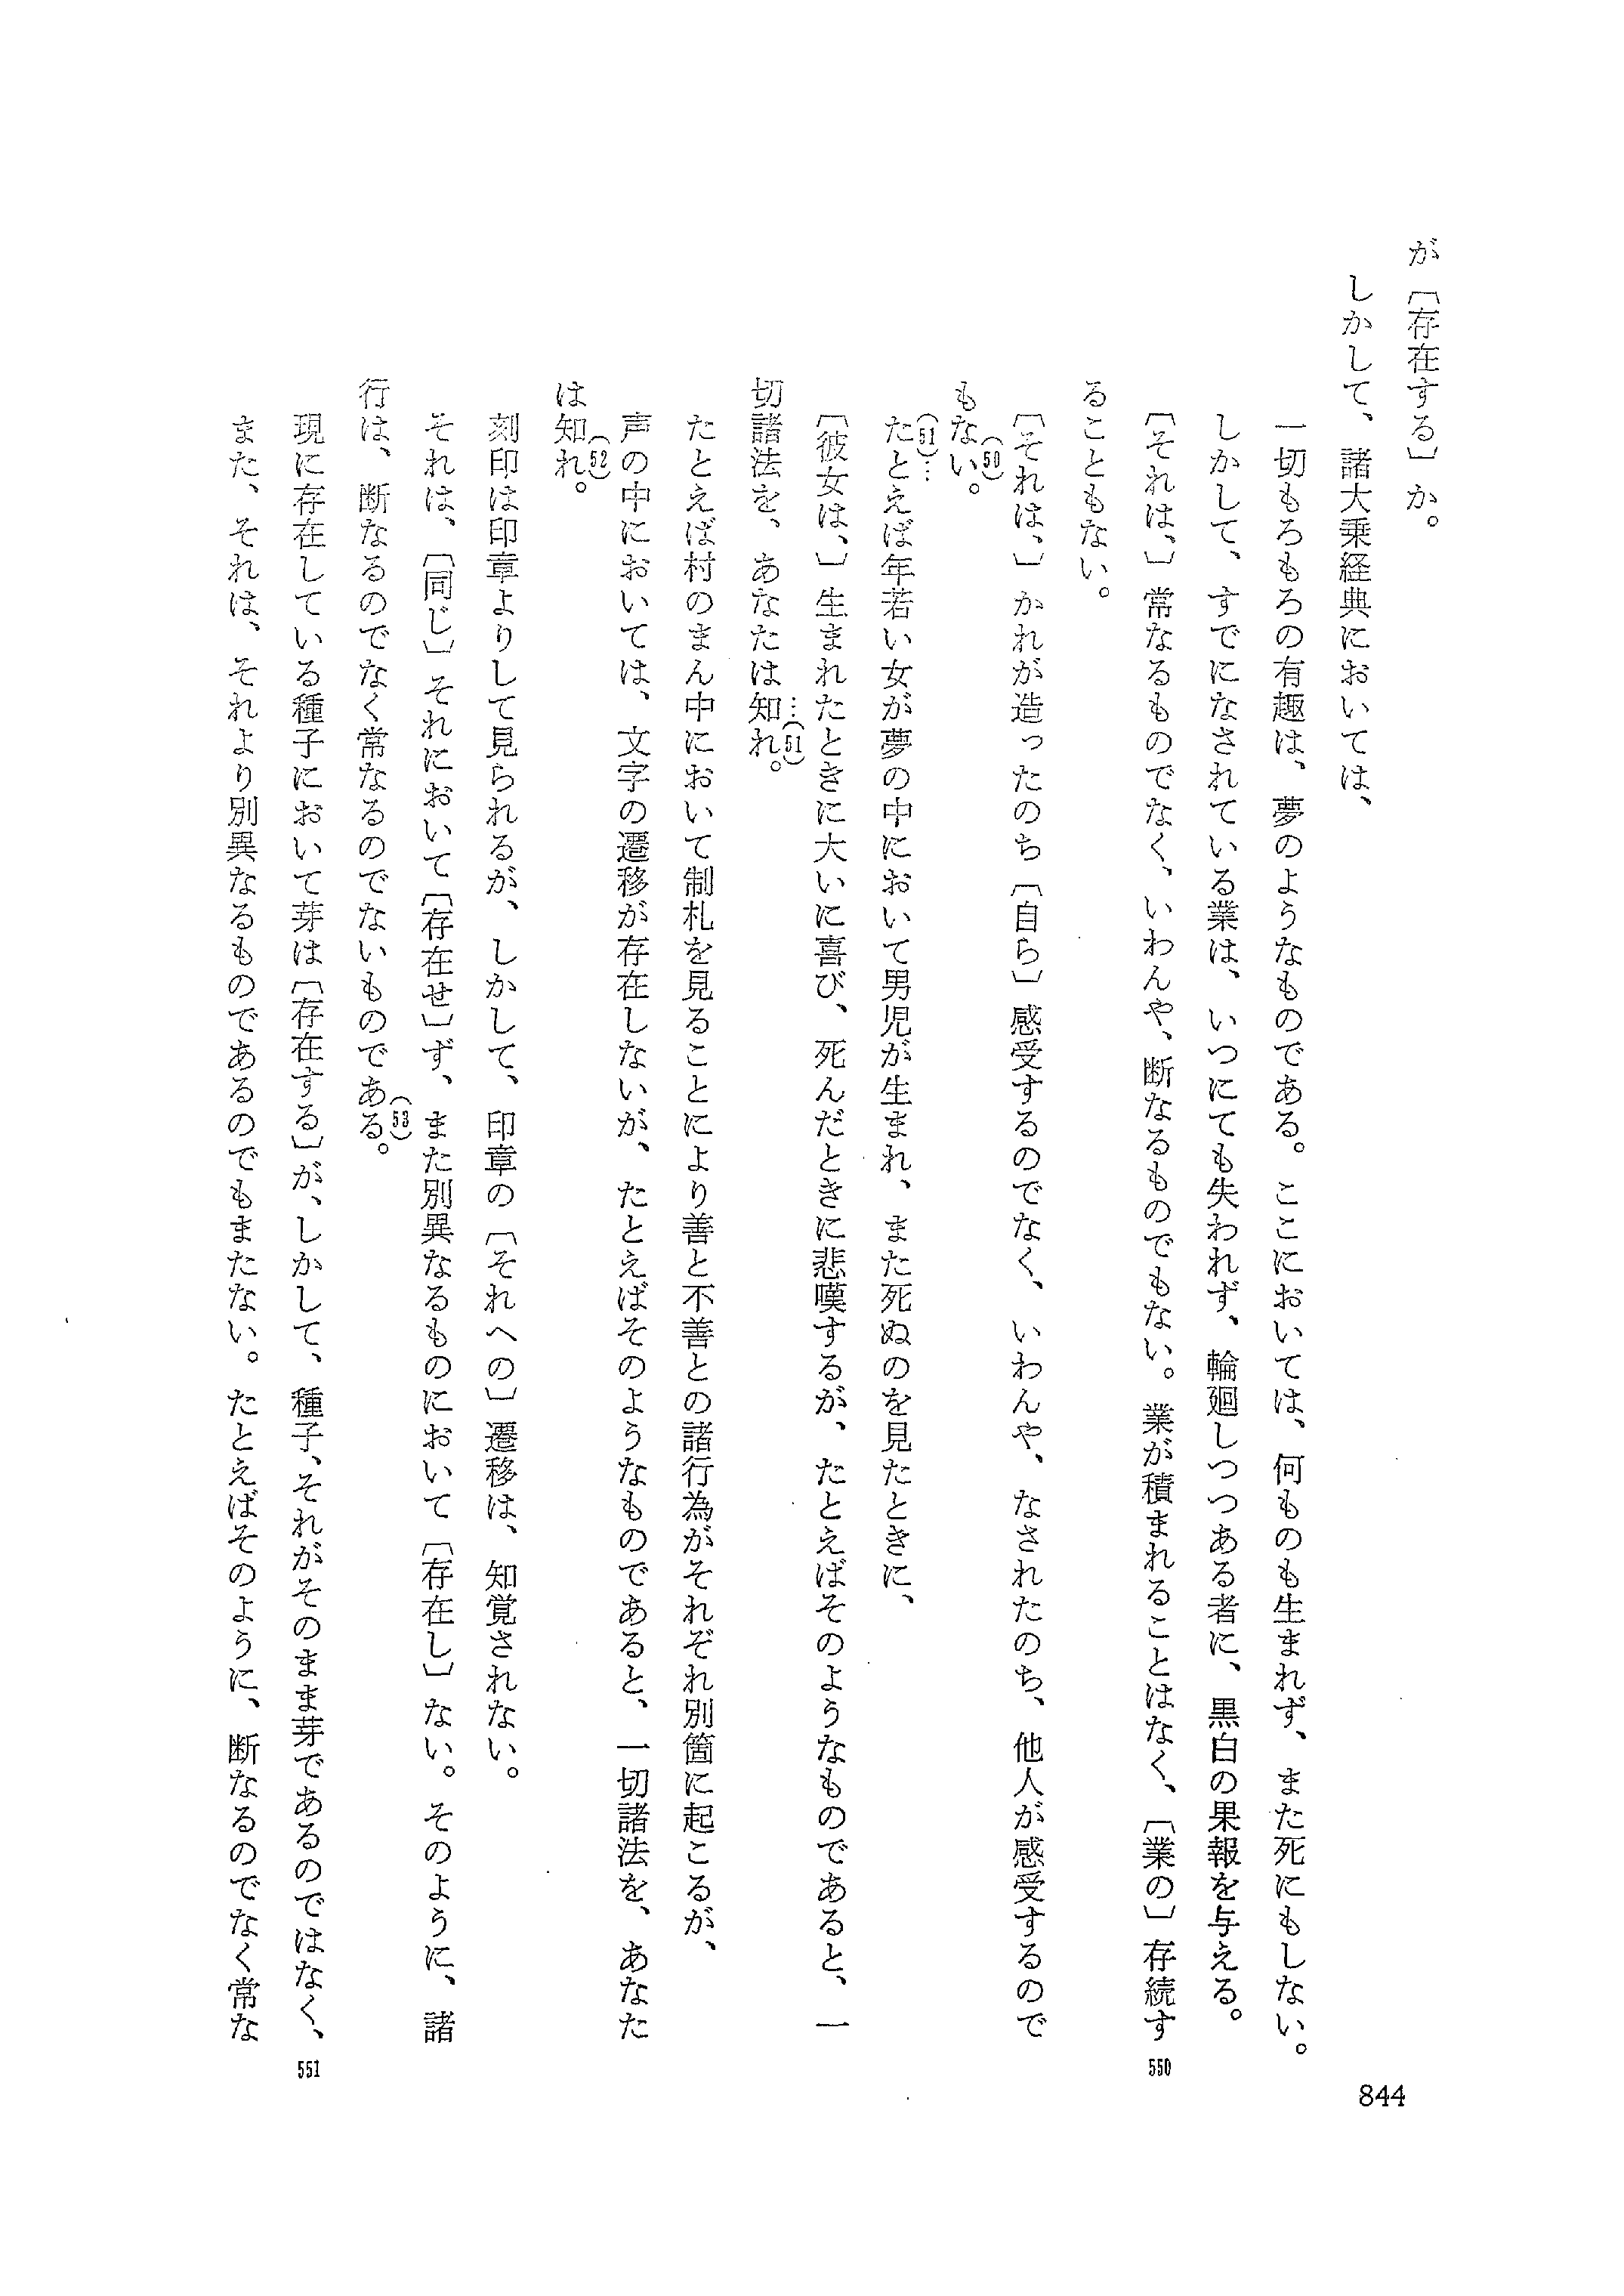 が〔存在する〕か。
しかして、諸大乗経典においては、
一切もろもろの有趣は、夢のようなものである。ここにおいては、何ものも生まれず、また死にもしない。
しかして、すでになされている業は、いつにても失われず、輪廻しつつある者に、黒白の果報を与える。
〔それは、〕常なるものでなく、いわんや、断なるものでもない。業が積まれることはなく、〔業の〕存続す
550
ることもない。
〔それは、〕かれが造ったのち〔自ら〕感受するのでなく、いわんや、なされたのち、他人が感受するので
もない。(50)
(51)…たとえば年若い女が夢の中において男児が生まれ、また死ぬのを見たときに、
〔彼女は、〕生まれたときに大いに喜び、死んだときに悲嘆するが、たとえばそのようなものであると、一
切諸法を、あなたは知れ。…(51)
たとえば村のまん中において制札を見ることにより善と不善との諸行為がそれぞれ別箇に起こるが、
声の中においては、文字の遷移が存在しないが、たとえばそのようなものであると、一切諸法を、あなた
は知れ。(52)
刻印は印章よりして見られるが、しかして、印章の〔それへの〕遷移は、知覚されない。
それは、〔同じ〕それにおいて〔存在せ〕ず、また別異なるものにおいて〔存在し〕ない。そのように、諸
行は、断なるのでなく常なるのでないものである。(53)
現に存在している種子において芽は〔存在する〕が、しかして、種子、それがそのまま芽であるのではなく、
551
また、それは、それより別異なるものであるのでもまたない。たとえばそのように、断なるのでなく常な
844